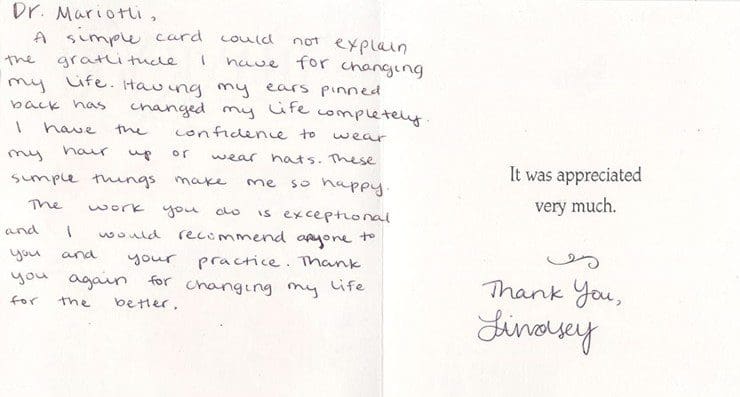 Dr. Mariotti,
A simple card could not explain
the gratitude I have for changing
my life. Having my ears pinned
back has changed my life completely.
I have the confidence to wear
my hair up or wear hats. These
simple things make me so happy.
The work you do is exceptional
and I would recommend anyone to
you and your practice. Thank
you again for changing my life
for the better.
It was appreciated
very much.
Thank You,
Lindsey